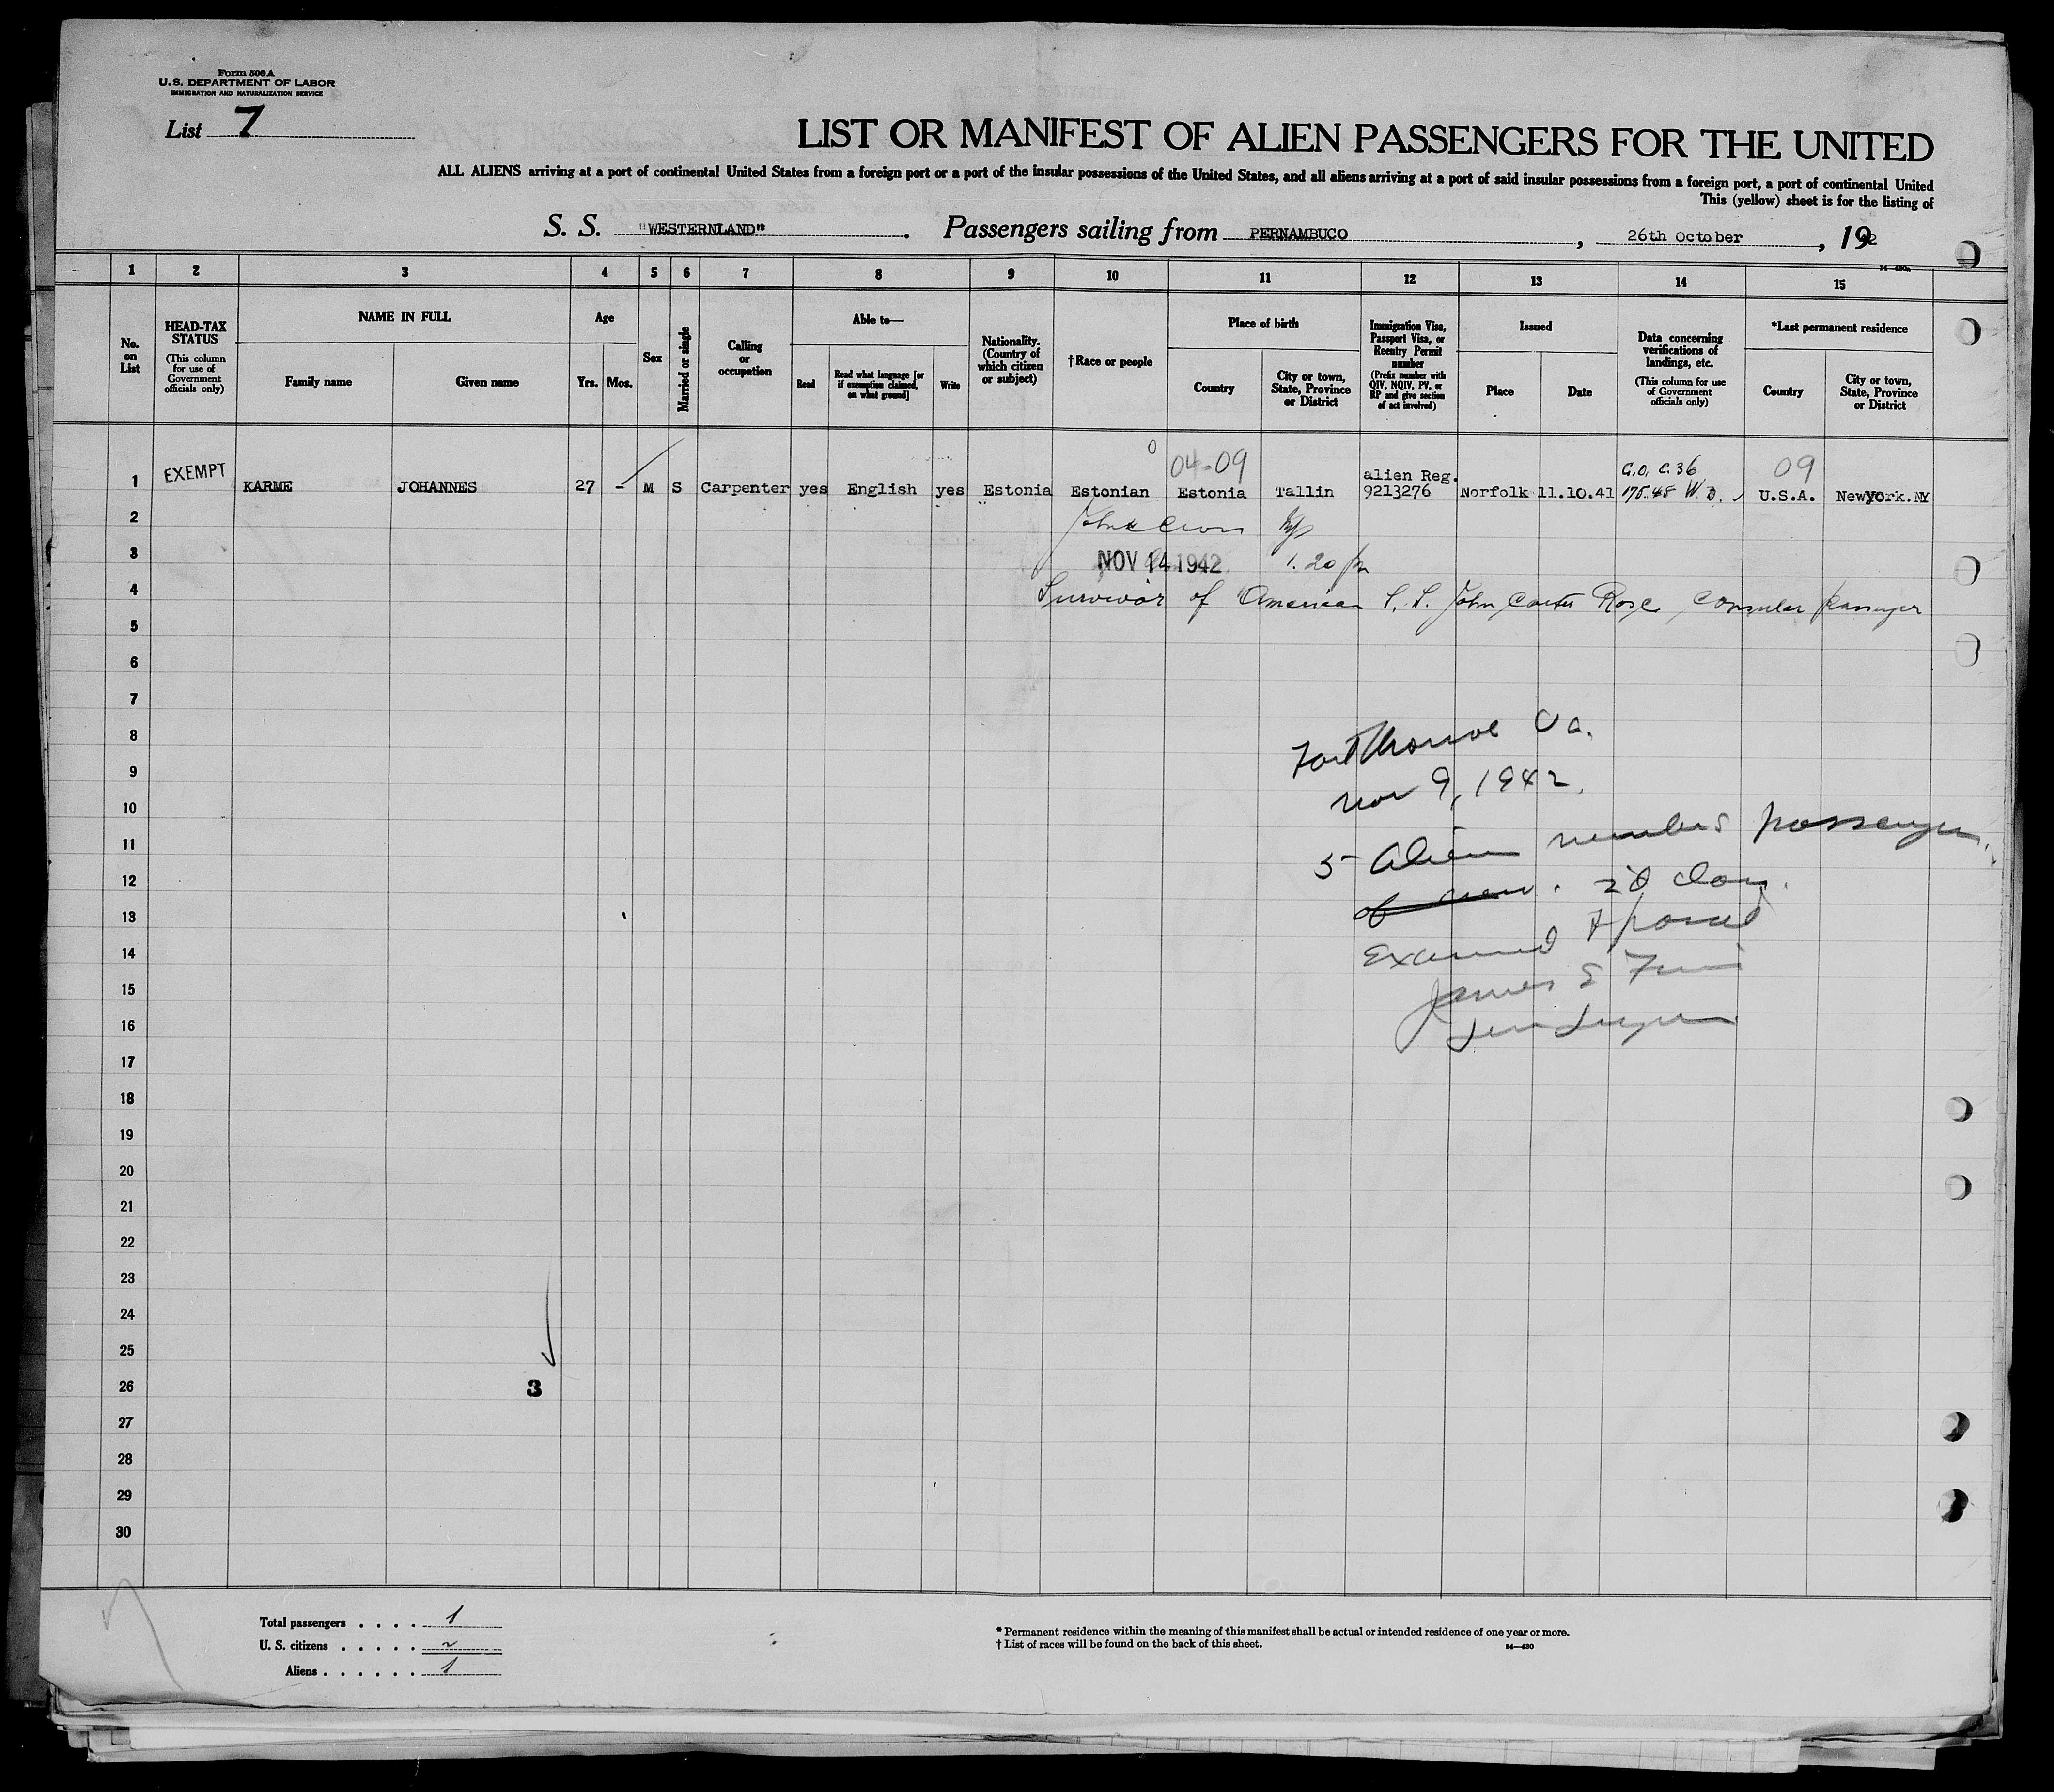 Form 500 A
U.S. DEPARTMENT OF LABOR
IMMIGRATION AND NATURALIZATION SERVICE
List 7
LIST OR MANIFEST OF ALIEN PASSENGERS FOR THE UNITED
ALL ALIENS arriving at a port of continental United States from a foreign port or a port of the insular possessions of the United States, and all aliens arriving at a port of said insular possessions from a foreign port, a port of continental United
This (yellow) sheet is for the listing of
S. S. "WESTERNLAND". Passengers sailing from PERNAMBUCO, 26th October, 1942
1 2 3 4 5 6 7 8 9 10 11 12 13 14 15
No. on List
HEAD-TAX STATUS (This column for use of Government officials only)
NAME IN FULL
Family name
Given name
Age
Yrs.
Mos.
Sex
Married or single
Calling or occupation
Able to—
Read
Read what language [or if exemption claimed, on what ground]
Write
Nationality. (Country of which citizen or subject)
†Race or people
Place of birth
Country
City or town, State, Province or District
Immigration Visa, Passport Visa, or Reentry Permit number (Prefix number with QIV, NQIV, PV, or RP and give section of act involved)
Issued
Place
Date
Data concerning verifications of landings, etc. (This column for use of Government officials only)
*Last permanent residence
Country
City or town, State, Province or District
0 04-09 G.O. C.36 09
1 EXEMPT KARME JOHANNES 27 - M S Carpenter yes English yes Estonia Estonian Estonia Tallin alien Reg. 9213276 Norfolk 11.10.41 175.45 U.S.A. NewYork.NY
2
3 NOV 14 1942 1.20 pm
4 Survivor of American S.S. John Carter Rose consular passenger
5
6
7
8 Fort Monroe Va.
9 Nov 9, 1942.
10
11 5- Alien members passenger
12
13
14 Examined & passed
15 James E
16
17
18
19
20
21
22
23
24
25
26 3
27
28
29
30
Total passengers . . . . 1
U. S. citizens . . . . .
Aliens . . . . . . 1
* Permanent residence within the meaning of this manifest shall be actual or intended residence of one year or more.
† List of races will be found on the back of this sheet. 14—430